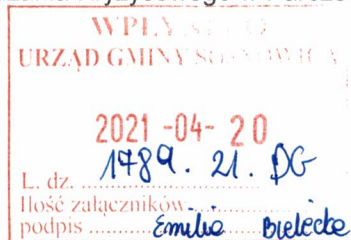 WPŁYNĘŁO
URZĄD GMINY SOSNOWICA
2021 -04- 20
L. dz. 1789. 21. DG
Ilość załączników
podpis Emilia Bielecka